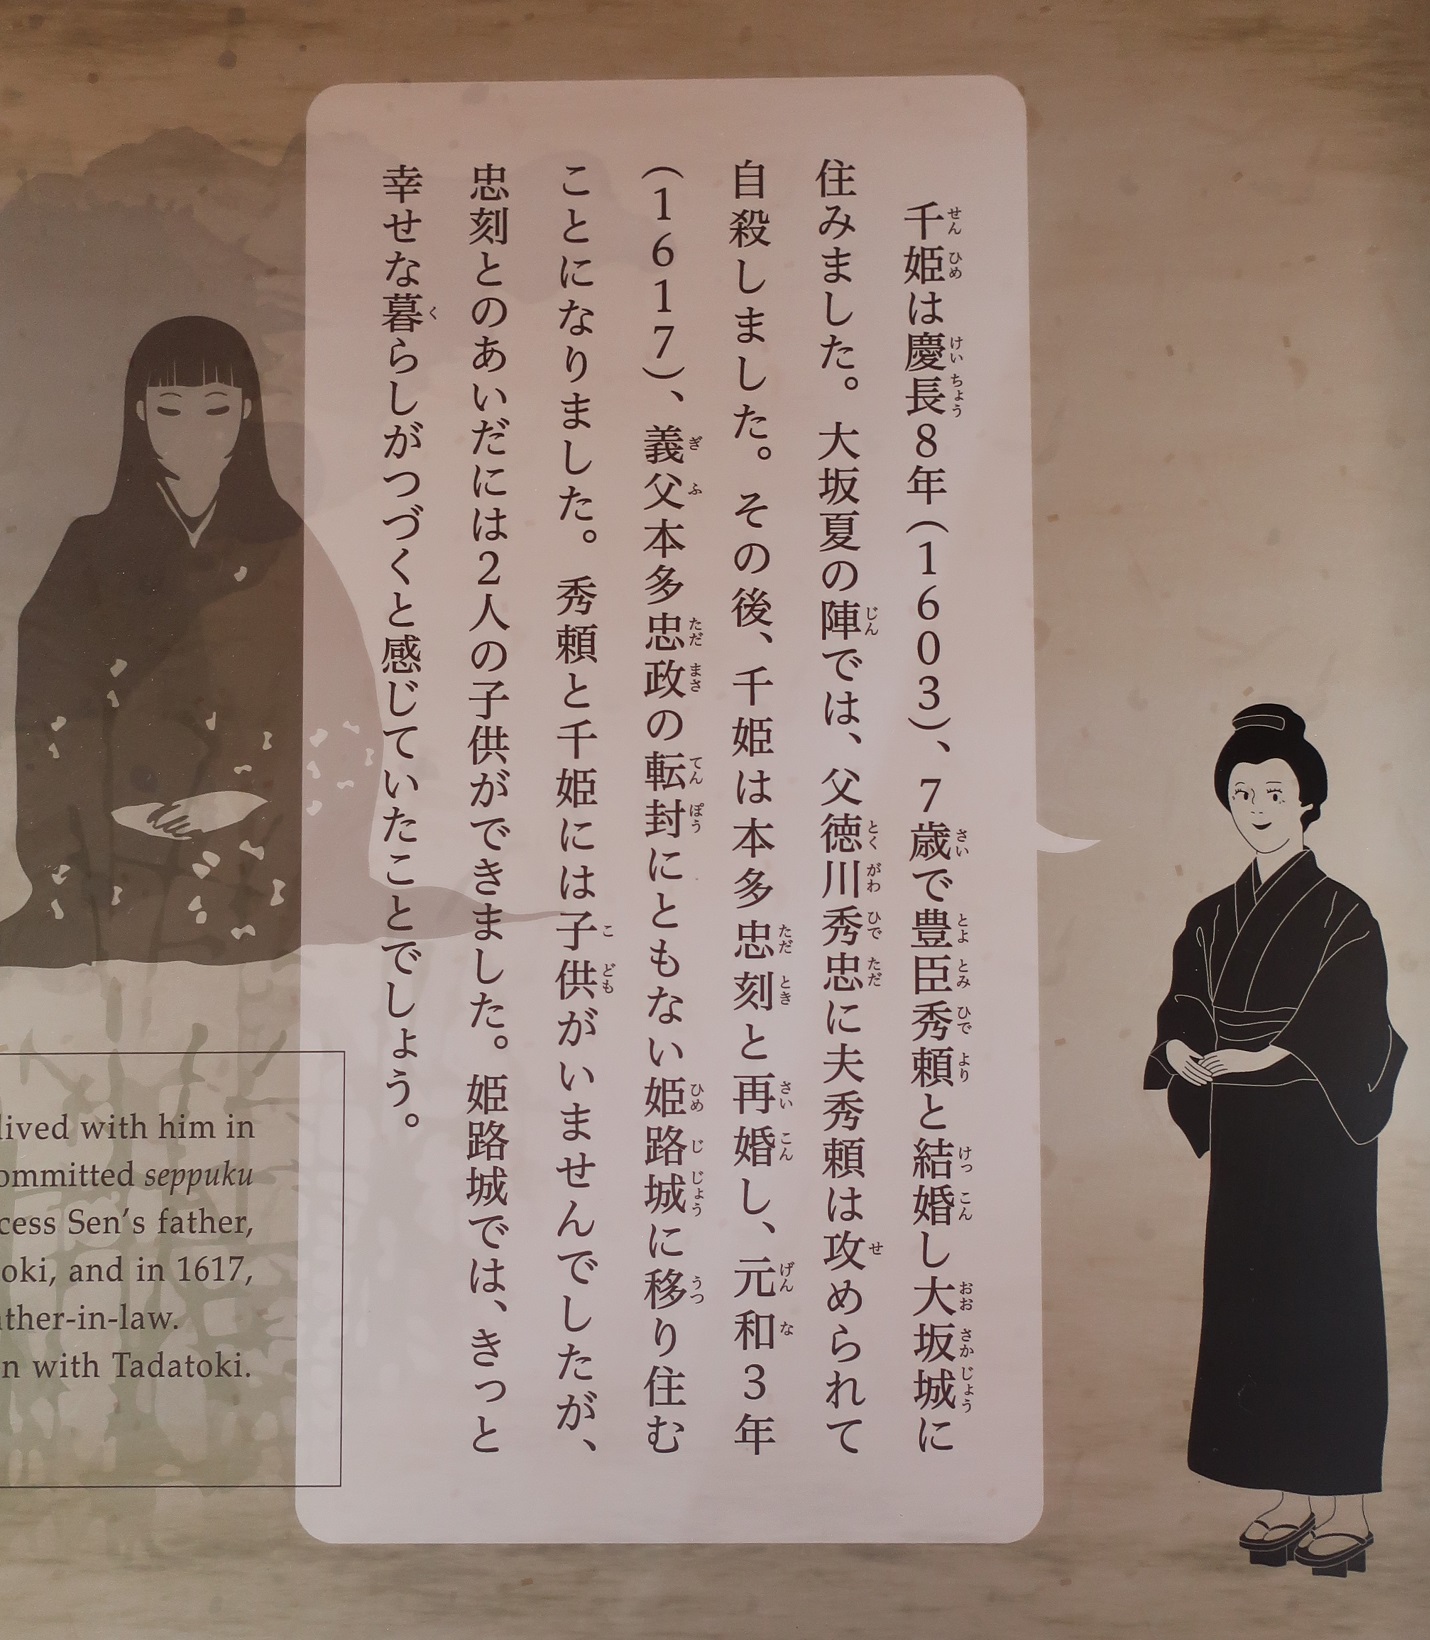 千姫は慶長8年(1603)、7歳で豊臣秀頼と結婚し大坂城に
住みました。大坂夏の陣では、父徳川秀忠に夫秀頼は攻められて
自殺しました。その後、千姫は本多忠刻と再婚し、元和3年
(1617)、義父本多忠政の転封にともない姫路城に移り住む
ことになりました。秀頼と千姫には子供がいませんでしたが、
忠刻とのあいだには2人の子供ができました。姫路城では、きっと
幸せな暮らしがつづくと感じていたことでしょう。
lived with him in
ommitted seppuku
cess Sen's father,
oki, and in 1617,
ather-in-law.
n with Tadatoki.